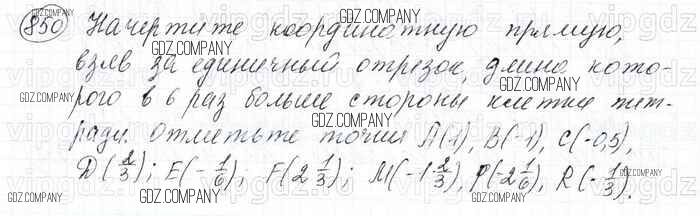 850 Начертите координатную прямую,
взяв за единичный отрезок, длина кото-
рого в 6 раз больше стороны клетки тет-
ради. Отметьте точки A(1), B(-1), C(-0,5),
D(2/3); E(-1/6), F(2 1/3); M(-1 2/3), P(-2 1/6), R(-1/3).
GDZ.COMPANY
GDZ.COMPANY
GDZ.COMPANY
GDZ.COMPANY
GDZ.COMPANY
GDZ.COMPANY
GDZ.COMPANY
GDZ.COMPANY
GDZ.COMPANY
GDZ.COMPANY